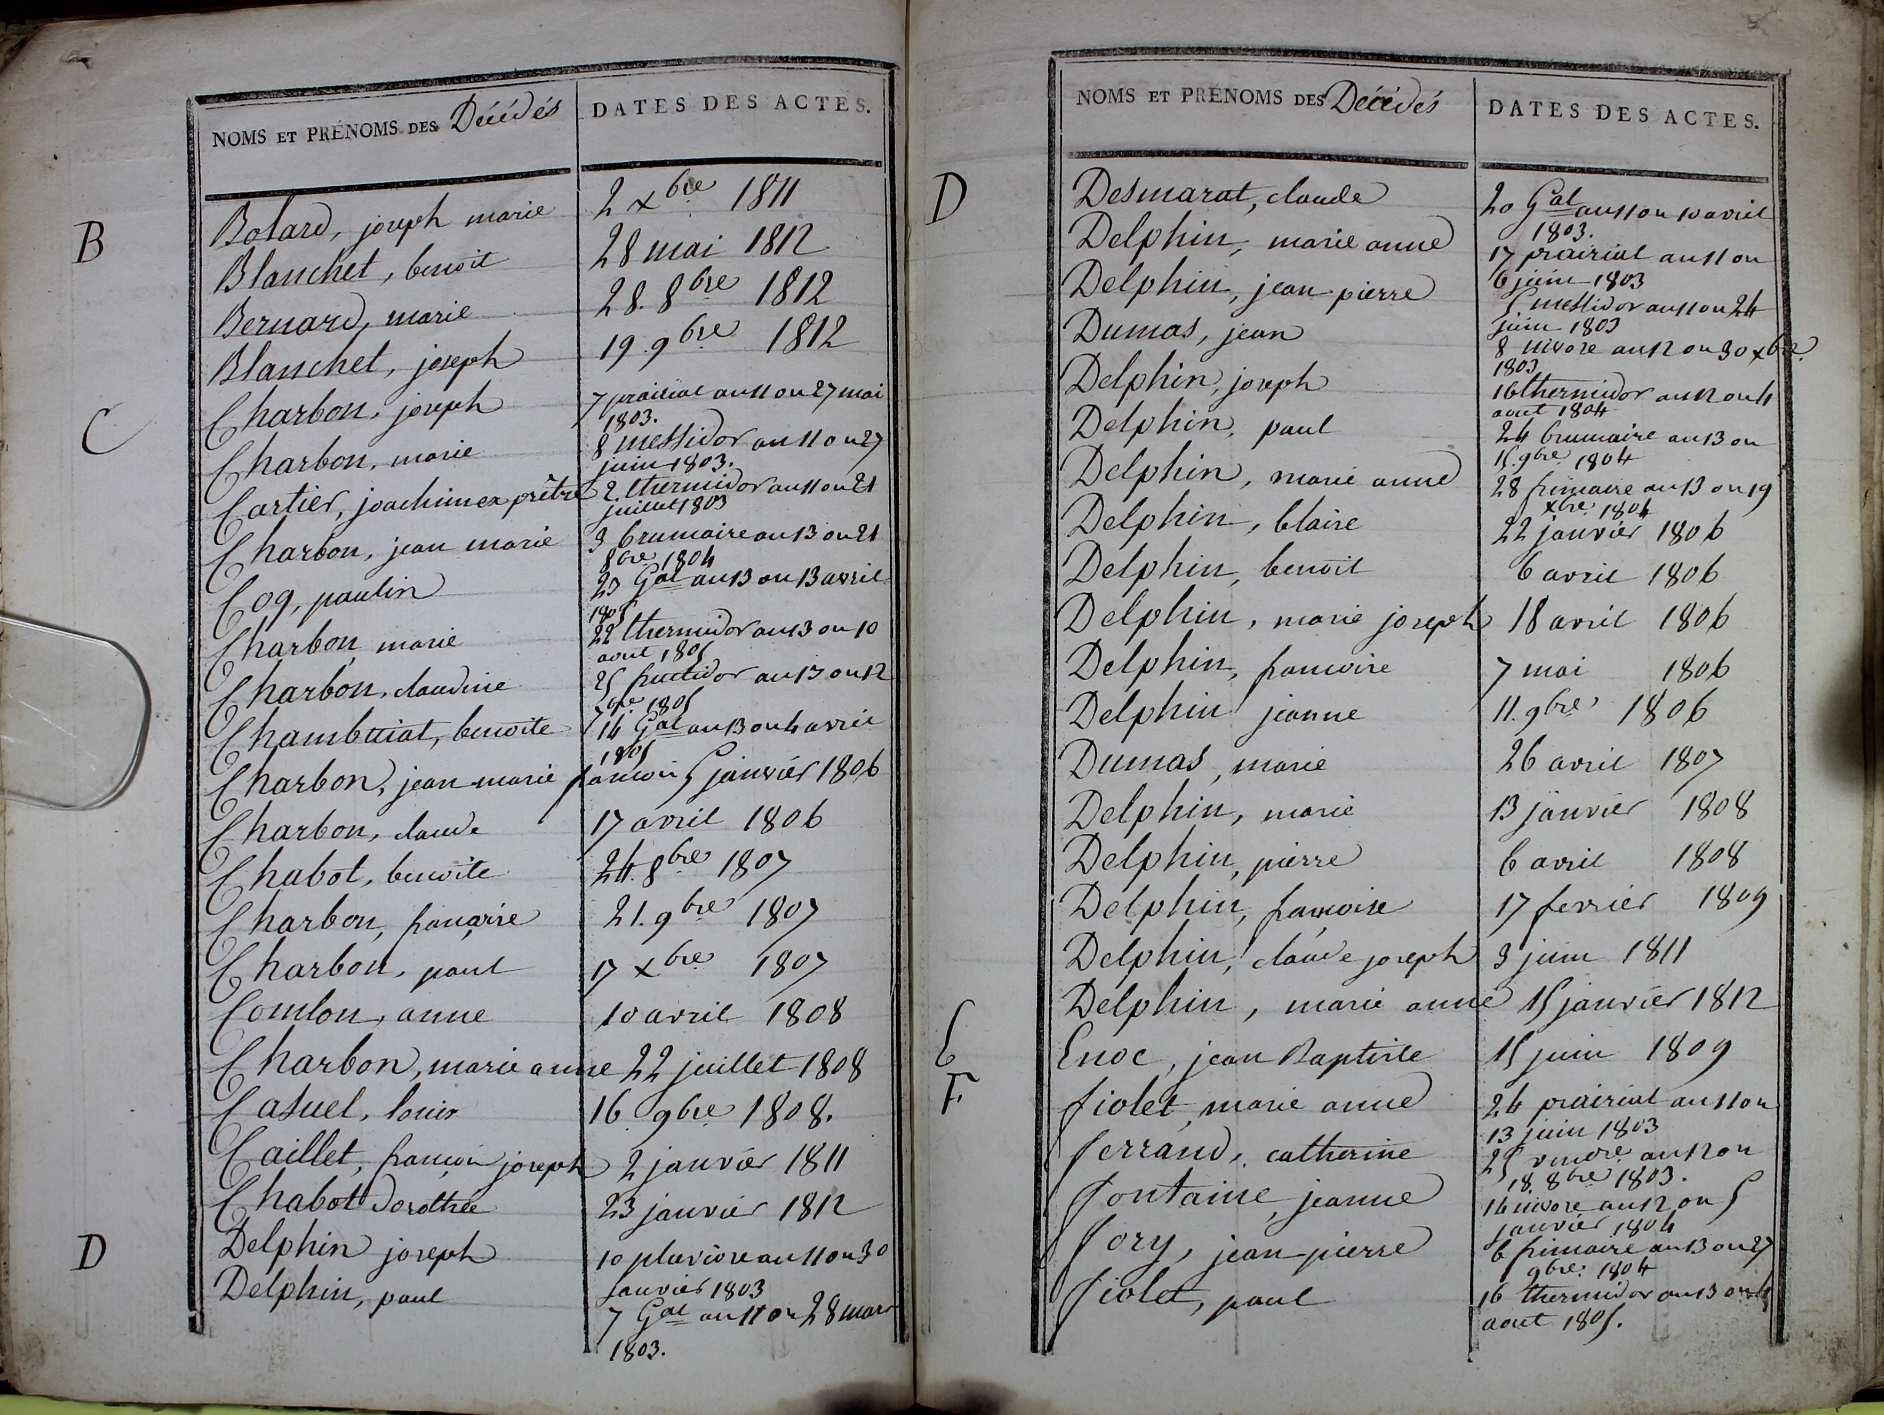 NOMS ET PRÉNOMS DES Décédés DATES DES ACTES.
B
Botard, joseph marie 2 xbre 1811
Blanchet, benoit 28 mai 1812
Bernard, marie 28. 8bre 1812
Blanchet, joseph 19. 9bre 1812
C
Charbon, joseph 7 prairial an 11 ou 27 mai
1803.
Charbon, marie 8 messidor an 11 ou 27
juin 1803.
Cartier, joachim ex prêtre 2 thermidor an 11 ou 21
juillet 1803
Charbon, jean marie 3 brumaire an 13 ou 21
8bre 1804
Coq, paulin 23 Gal an 13 ou 13 avril
1805
Charbon, marie 22 thermidor an 13 ou 10
aout 1805
Charbon, claudine 25 fructidor an 13 ou 12
7bre 1805
Chambutiat, benoite 14 Gal an 13 ou 4 avril
1805
Charbon, jean marie francois 5 janvier 1806
Charbon, claude 17 avril 1806
Chabot, benoite 24. 8bre 1807
Charbon, françoise 21. 9bre 1807
Charbon, paul 17 xbre 1807
Coulon, anne 10 avril 1808
Charbon, marie anne 22 juillet 1808
Casuel, louis 16 9bre 1808.
Caillet, françois joseph 2 janvier 1811
Chabot Dorothée 23 janvier 1812
D
Delphin joseph 10 pluviose an 11 ou 30
janvier 1803
Delphin, paul 7 Gal an 11 ou 28 mars
1803.
NOMS ET PRÉNOMS DES Décédés DATES DES ACTES.
D
Desmarat, claude 20 Gal an 11 ou 10 avril
1803.
Delphin, marie anne 17 prairial an 11 ou
6 juin 1803
Delphin, jean pierre 5 messidor an 11 ou 24
juin 1803
Dumas, jean 8 nivose an 12 ou 30 xbre
1803
Delphin, joseph 16 thermidor an 12 ou 4
aout 1804
Delphin, paul 24 brumaire an 13 ou
15. 9bre 1804
Delphin, marie anne 28 frimaire an 13 ou 19
xbre 1804
Delphin, blaise 22 janvier 1806
Delphin, benoit 6 avril 1806
Delphin, marie joseph 18 avril 1806
Delphin, francoise 7 mai 1806
Delphin jeanne 11. 9bre 1806
Dumas, marie 26 avril 1807
Delphin, marie 13 janvier 1808
Delphin, pierre 6 avril 1808
Delphin, françoise 17 fevrier 1809
Delphin, claude joseph 3 juin 1811
Delphin, marie anne 15 janvier 1812
E
Enoc, jean Baptiste 15 juin 1809
F
fiolet, marie anne 24 prairial an 11 ou
13 juin 1803
ferrand, catherine 25 vendre an 12 ou
18 8bre 1803.
fontaine, jeanne 14 nivose an 12 ou 5
janvier 1804
fory, jean pierre 6 frimaire an 13 ou 27
9bre 1804
fiolet, paul 16 thermidor an 13 ou 4
aout 1805.